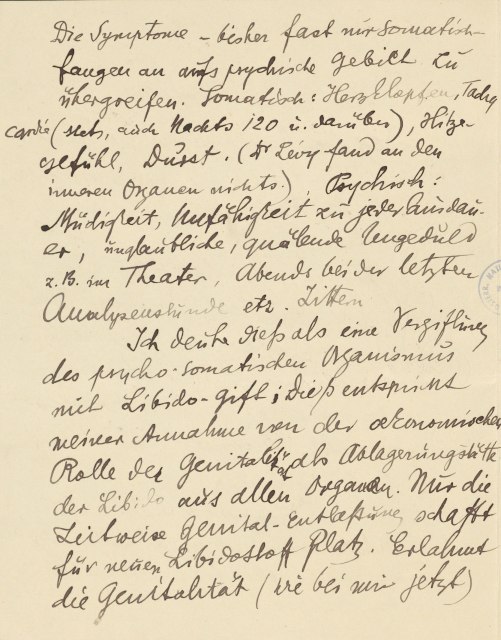 Die Symptome – bisher fast nur somatisch
fangen an aufs psychische Gebiet zu
übergreifen. Somatisch: Herzklopfen, Tachy
cardie (stets, auch Nachts 120 u. darüber), Hitze-
gefühl, Durst. (Dr Lévy fand an den
inneren Organen nichts.), Psychisch:
Müdigkeit, Unfähigkeit zu jeder Ausdau-
er, unglaubliche, quälende Ungeduld
z.B. im Theater, Abends bei der letzten
Analysenstunde etz. Zittern
Ich deute dieß als eine Vergiftung
des psycho-somatischen Organismus
mit Libido-gift; Dieß entspricht
meiner Annahme von der oekonomischen
Rolle der Genitalität als Ablagerungsstätte
der Libido aus allen Organen. Nur die
Zeitweise Genital-Entlastung schafft
für neuen Libidostoff Platz. Erlahmt
die Genitalität (wie bei mir jetzt)